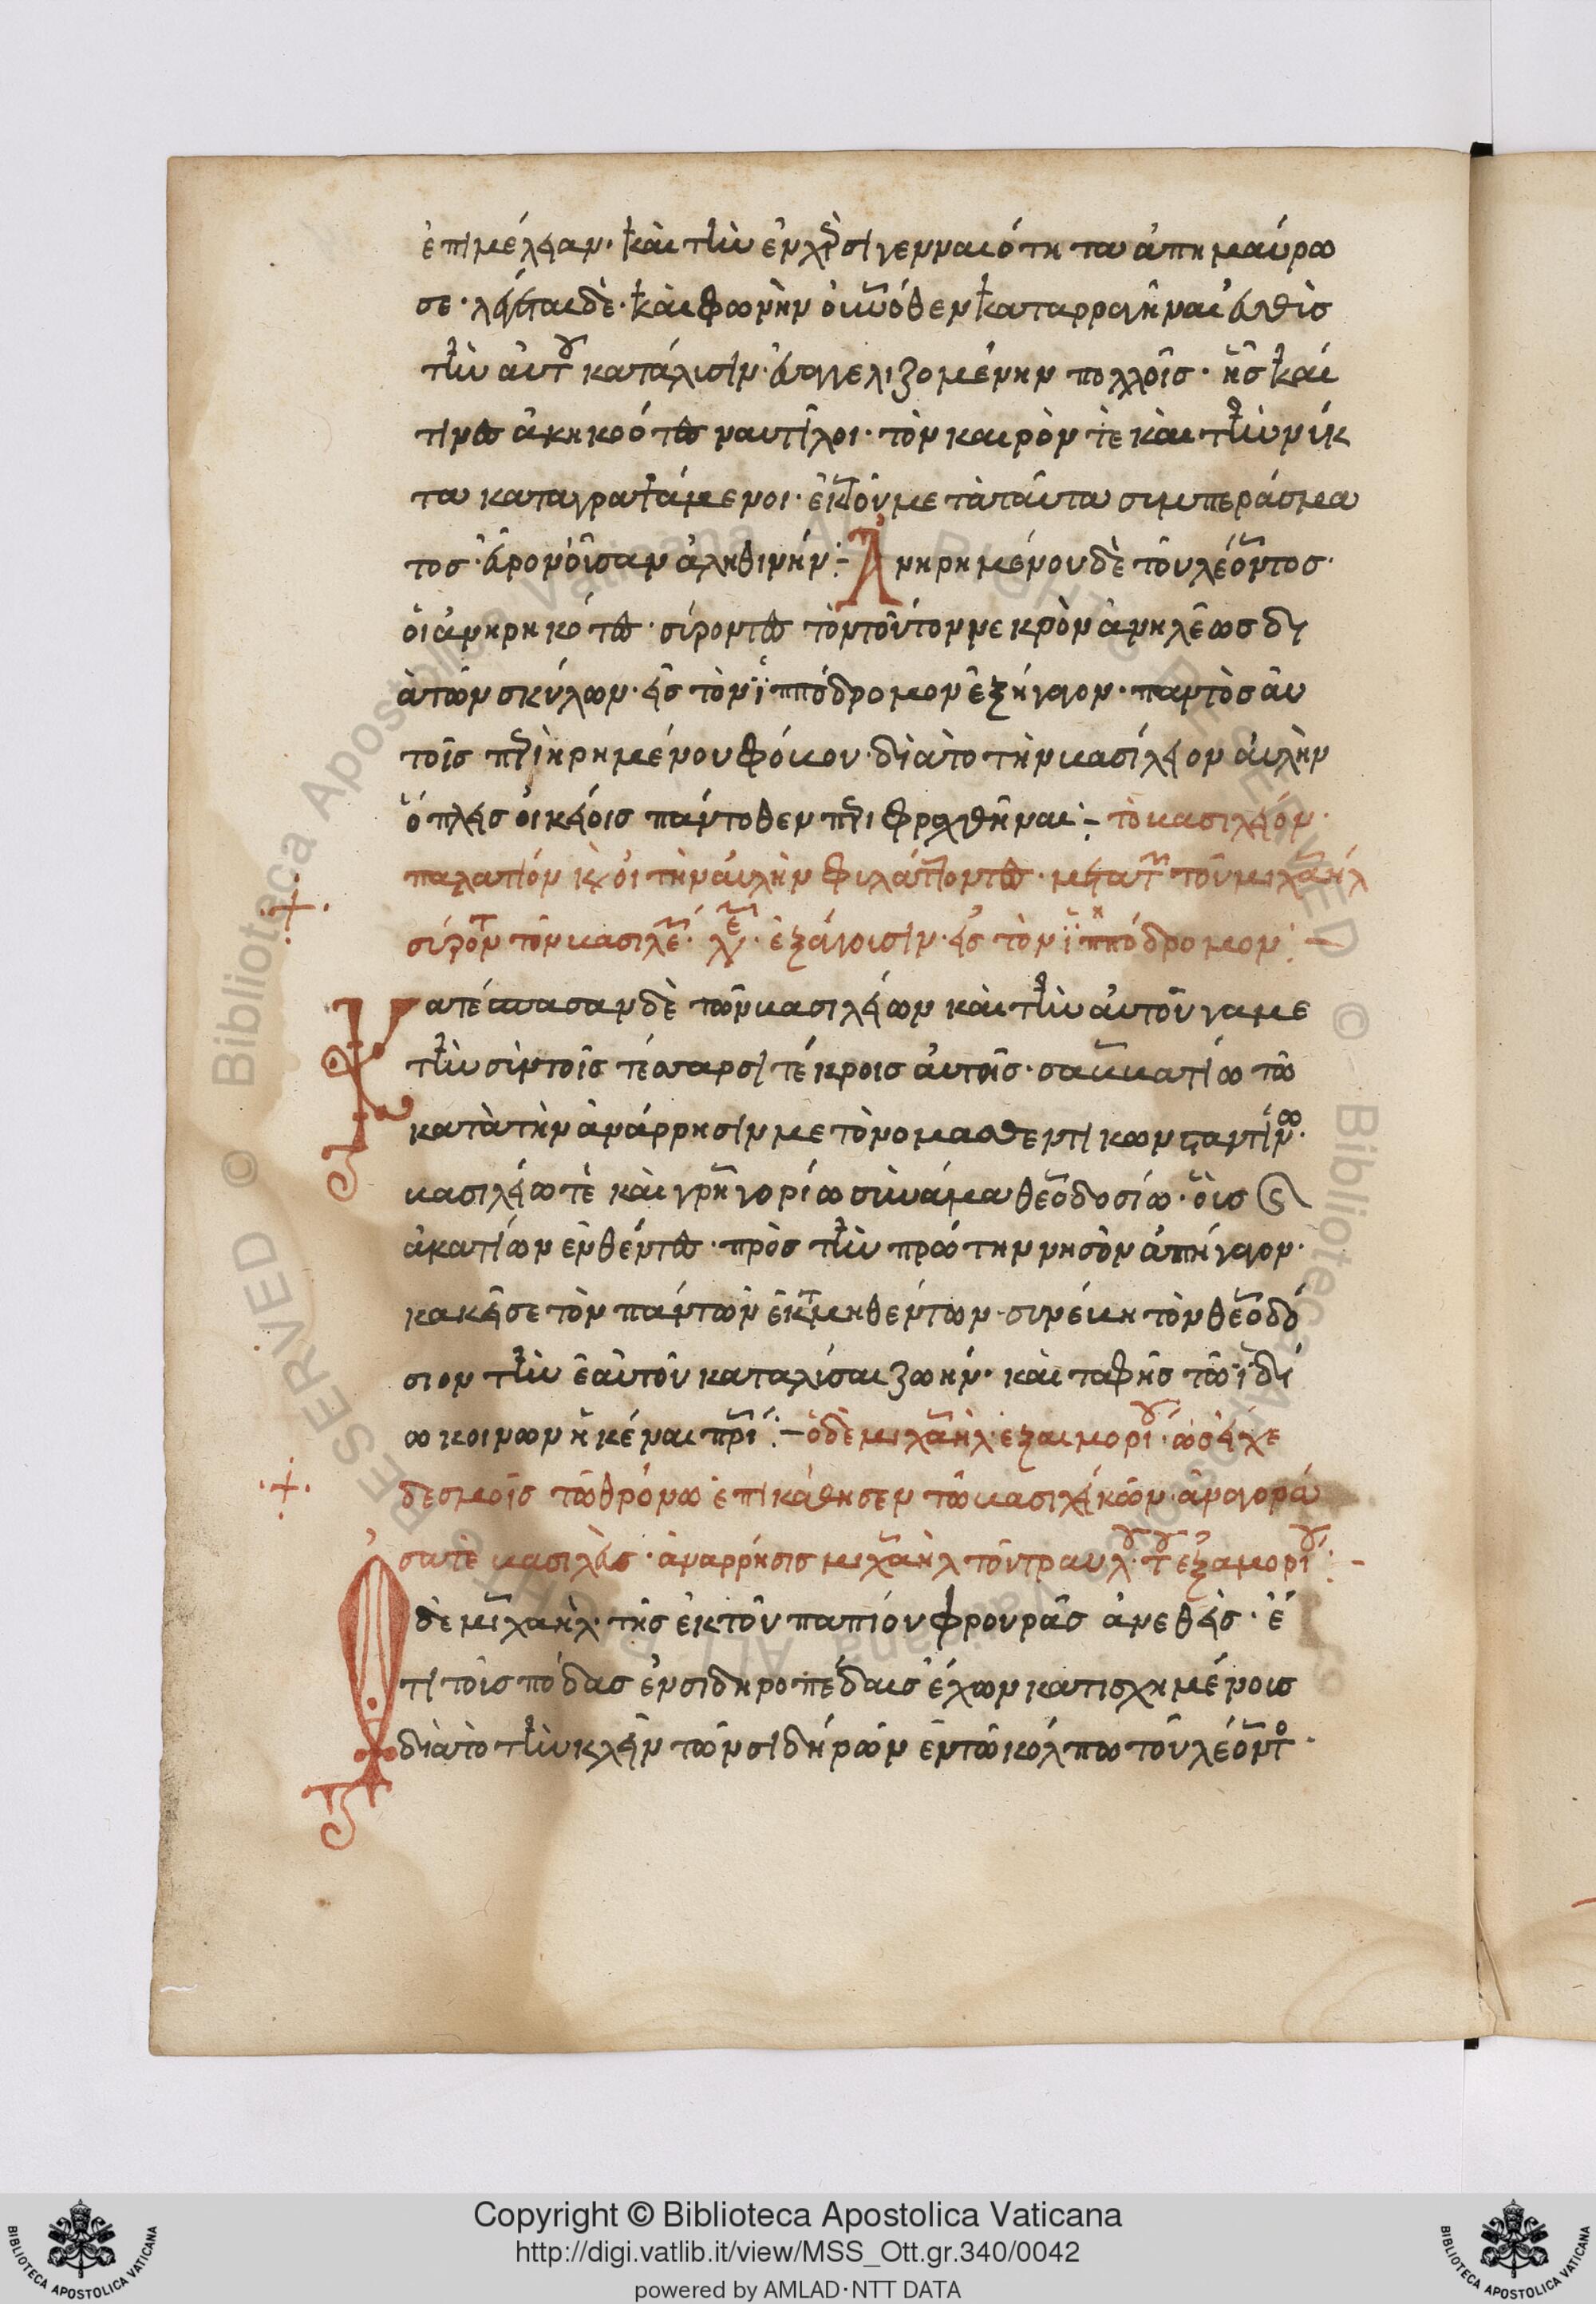 ἐπιμέλειαν· καὶ τὴν ἐν χερσὶ γενναιότητα ἀπημαύρω
σε· λέγεται δὲ· καὶ φωνὴν οὐρανόθεν καταρραγῆναι εὐθὺς
τὴν αὐτοῦ κατάλυσιν· εὐαγγελιζομένην πολλοῖς· ἧς καὶ
τινες ἀκηκοότες ναυτίλοι· τὸν καιρόν τε καὶ τὴν νύκ
τα καταγραψάμενοι· ἐκ τοῦ μετὰ ταῦτα συμπεράσμα
τος· εὗρον οὖσαν ἀληθινήν :- Ἀνῃρημένου δὲ τοῦ λέοντος·
οἱ ἀνῃρηκότες· σύροντες τὸν τούτου νεκρὸν ἀνηλεῶς δι
ὰ τῶν σκύλων· εἰς τὸν ἱππόδρομον ἐξήγαγον· παντὸς αὐ
τοῖς περιῃρημένου φόβου· διὰ τὸ τὴν βασίλειον αὐλὴν
ὅπλοις οἰκείοις πάντοθεν περιφραχθῆναι :- τὸ βασιλειόν·
παλατιόν κ(αὶ) οἱ τὴν αὐλὴν φυλάττοντες· μετὰ τοῦ μιχαήλ
σύρον τὸν βασιλέ· λέ· ἐξάγουσιν· εἰς τὸν ἱππόδρομον :-
Κατέσπασαν δὲ τῶν βασιλείων καὶ τὴν αὐτοῦ γαμε
τὴν σὺν τοῖς τέσσαρσι τέκνοις αὐτοῖς· σαββατίω τῶ
κατὰ τὴν ἀνάρρησιν μετονομασθέντι κωνσταντίνω·
βασιλείω τὲ καὶ γρηγορίω σὺν ἅμα θεοδοσίω· οὓς
ἀκατίων ἐνθέντες· πρὸς τὴν πρώτην νῆσον ἀπήγαγον·
κἀκεῖσε τὸν πάντων ἐκτμηθέντων· συνέβη τὸν θεοδό
σιον τὴν ἑαυτοῦ καταλύσαι ζωήν· καὶ ταφῆς τῶ ἰδί
ω κοινωνῆ :- ὁ δὲ μιχαὴλ ἐξ ἀμορίου· ὡς εἶχε
δεσμοῖς τῶ θρόνω ἐπικάθησεν τῶ βασιλικῶν· ἀναγορά
σατε βασιλὲς· ἀναρρήσις μιχαὴλ τοῦ τραυλοῦ· τοῦ ἐξ ἀμορίου :-
Ὁ δὲ μιχαὴλ· τῆς ἐκ τοῦ παπίου φρουρᾶς ἀνεθεὶς· ἔ
τι τοὺς πόδας ἐν σιδηροπέδαις ἔχων κατισχημένους
διὰ τὸ τὴν κλεῖν τῶν σιδήρων ἐν τῶ κόλπω τοῦ λέοντος·
Copyright © Biblioteca Apostolica Vaticana
http://digi.vatlib.it/view/MSS_Ott.gr.340/0042
powered by AMLAD·NTT DATA